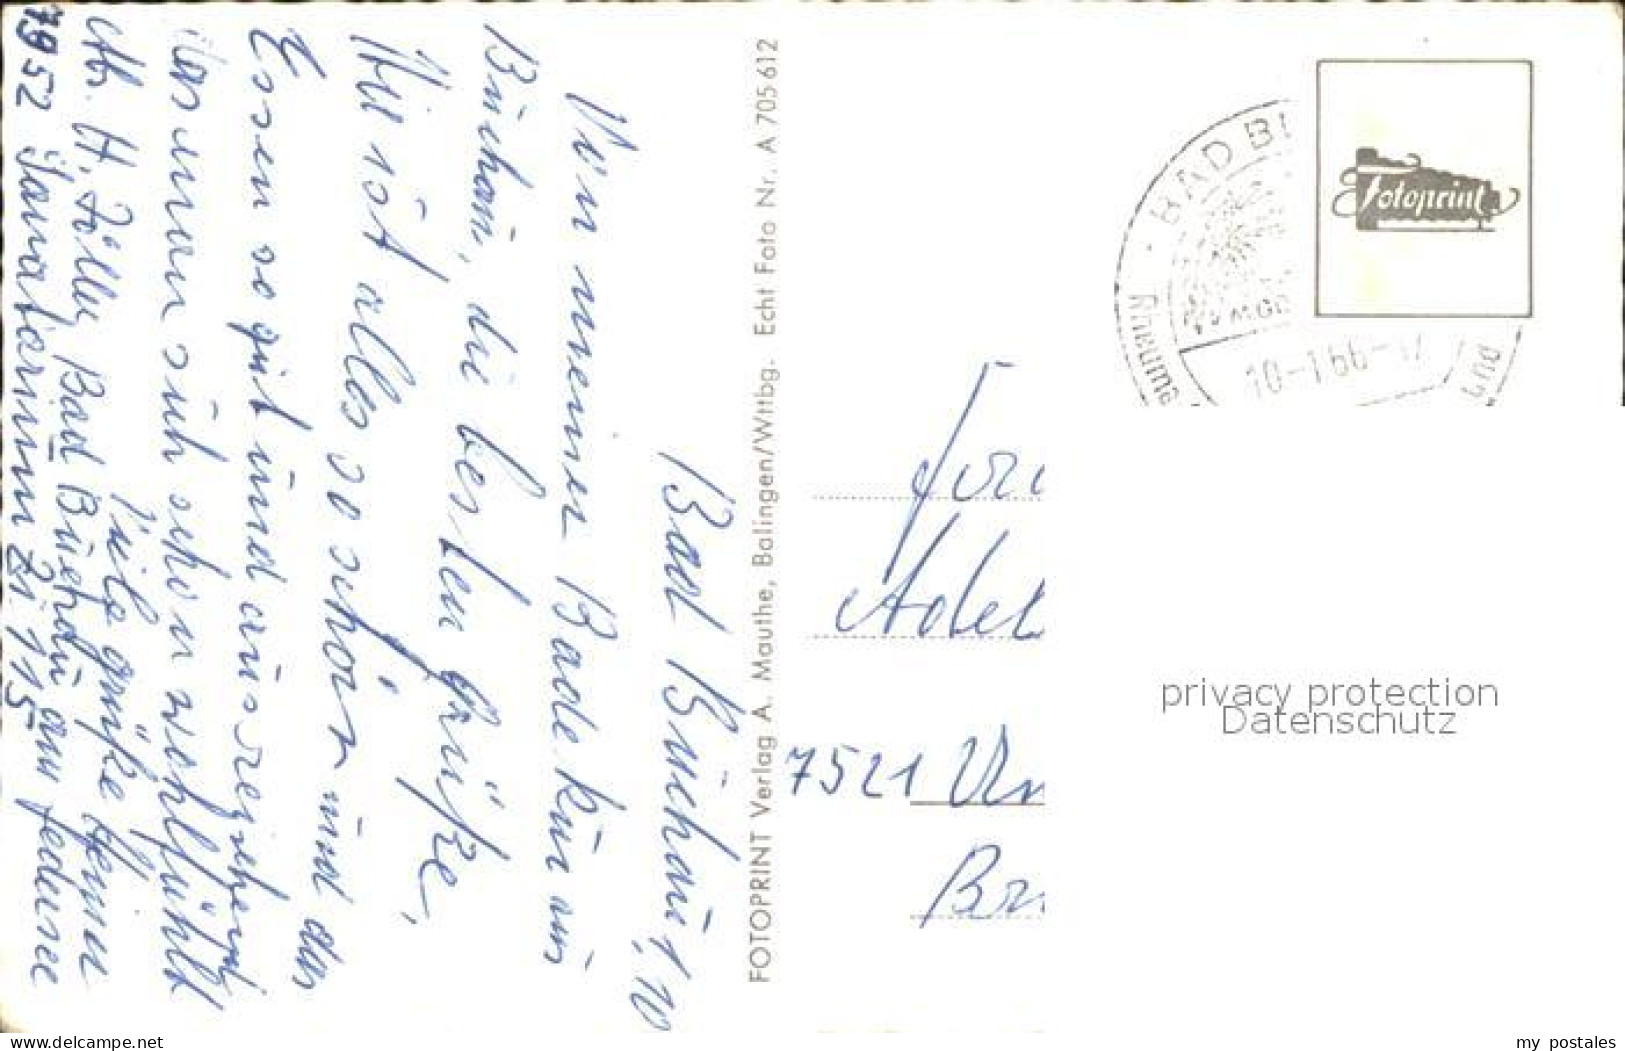 Bad Buchau, 10
Von meiner Badekur aus
Buchau, die besten Grüße,
Hier ist alles so schön und das
Essen so gut und ausreichend
das man sich schon wohlfühlt
Viele Grüße Heinn
Abs. H. Zöller Bad Buchau am Federsee
7952 Sanatorium Zi 115
FOTOPRINT Verlag A. Mauthe, Balingen/Wttbg. Echt Foto Nr. A 705 612
Fotoprint
BAD BU
Rheuma und
10-1 66-17
Adel
7521 Un
Br
privacy protection
Datenschutz
www.delcampe.net
my_postales